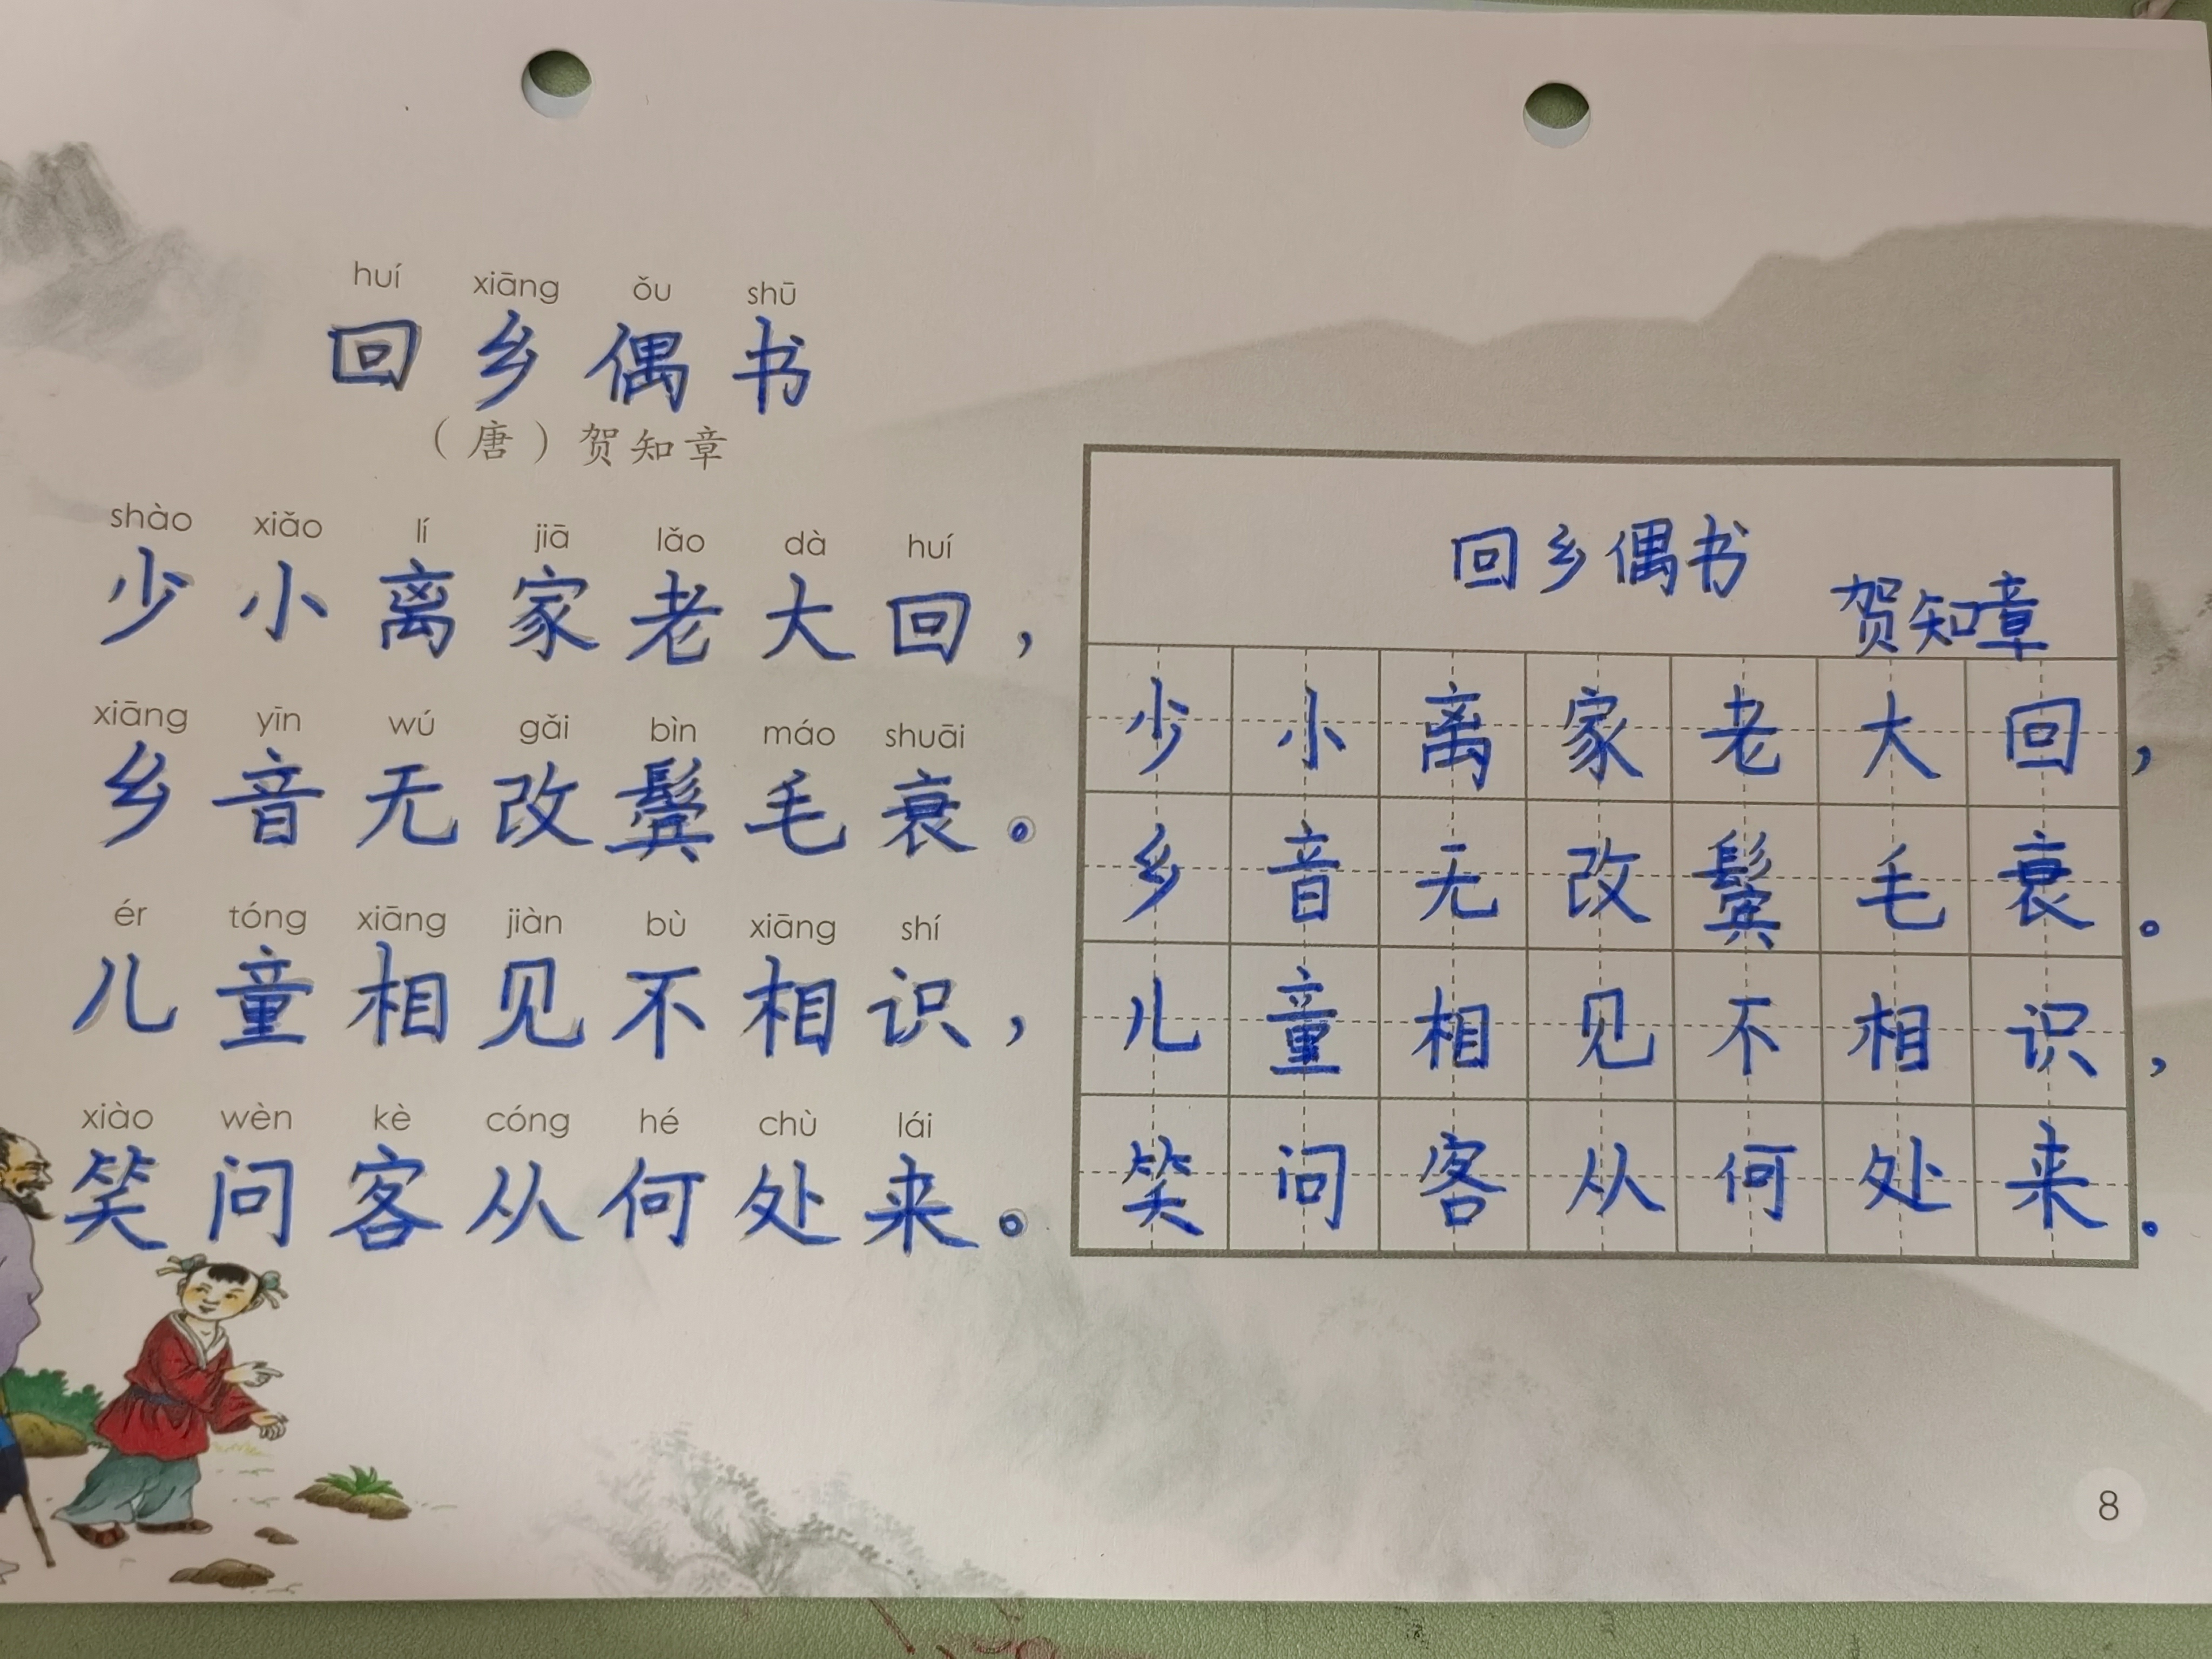 huí xiāng ǒu shū
回乡偶书
（唐）贺知章
shào xiǎo lí jiā lǎo dà huí
少小离家老大回，
xiāng yīn wú gǎi bìn máo shuāi
乡音无改鬓毛衰。
ér tóng xiāng jiàn bù xiāng shí
儿童相见不相识，
xiào wèn kè cóng hé chù lái
笑问客从何处来。
回乡偶书
贺知章
少小离家老大回，
乡音无改鬓毛衰。
儿童相见不相识，
笑问客从何处来。
8